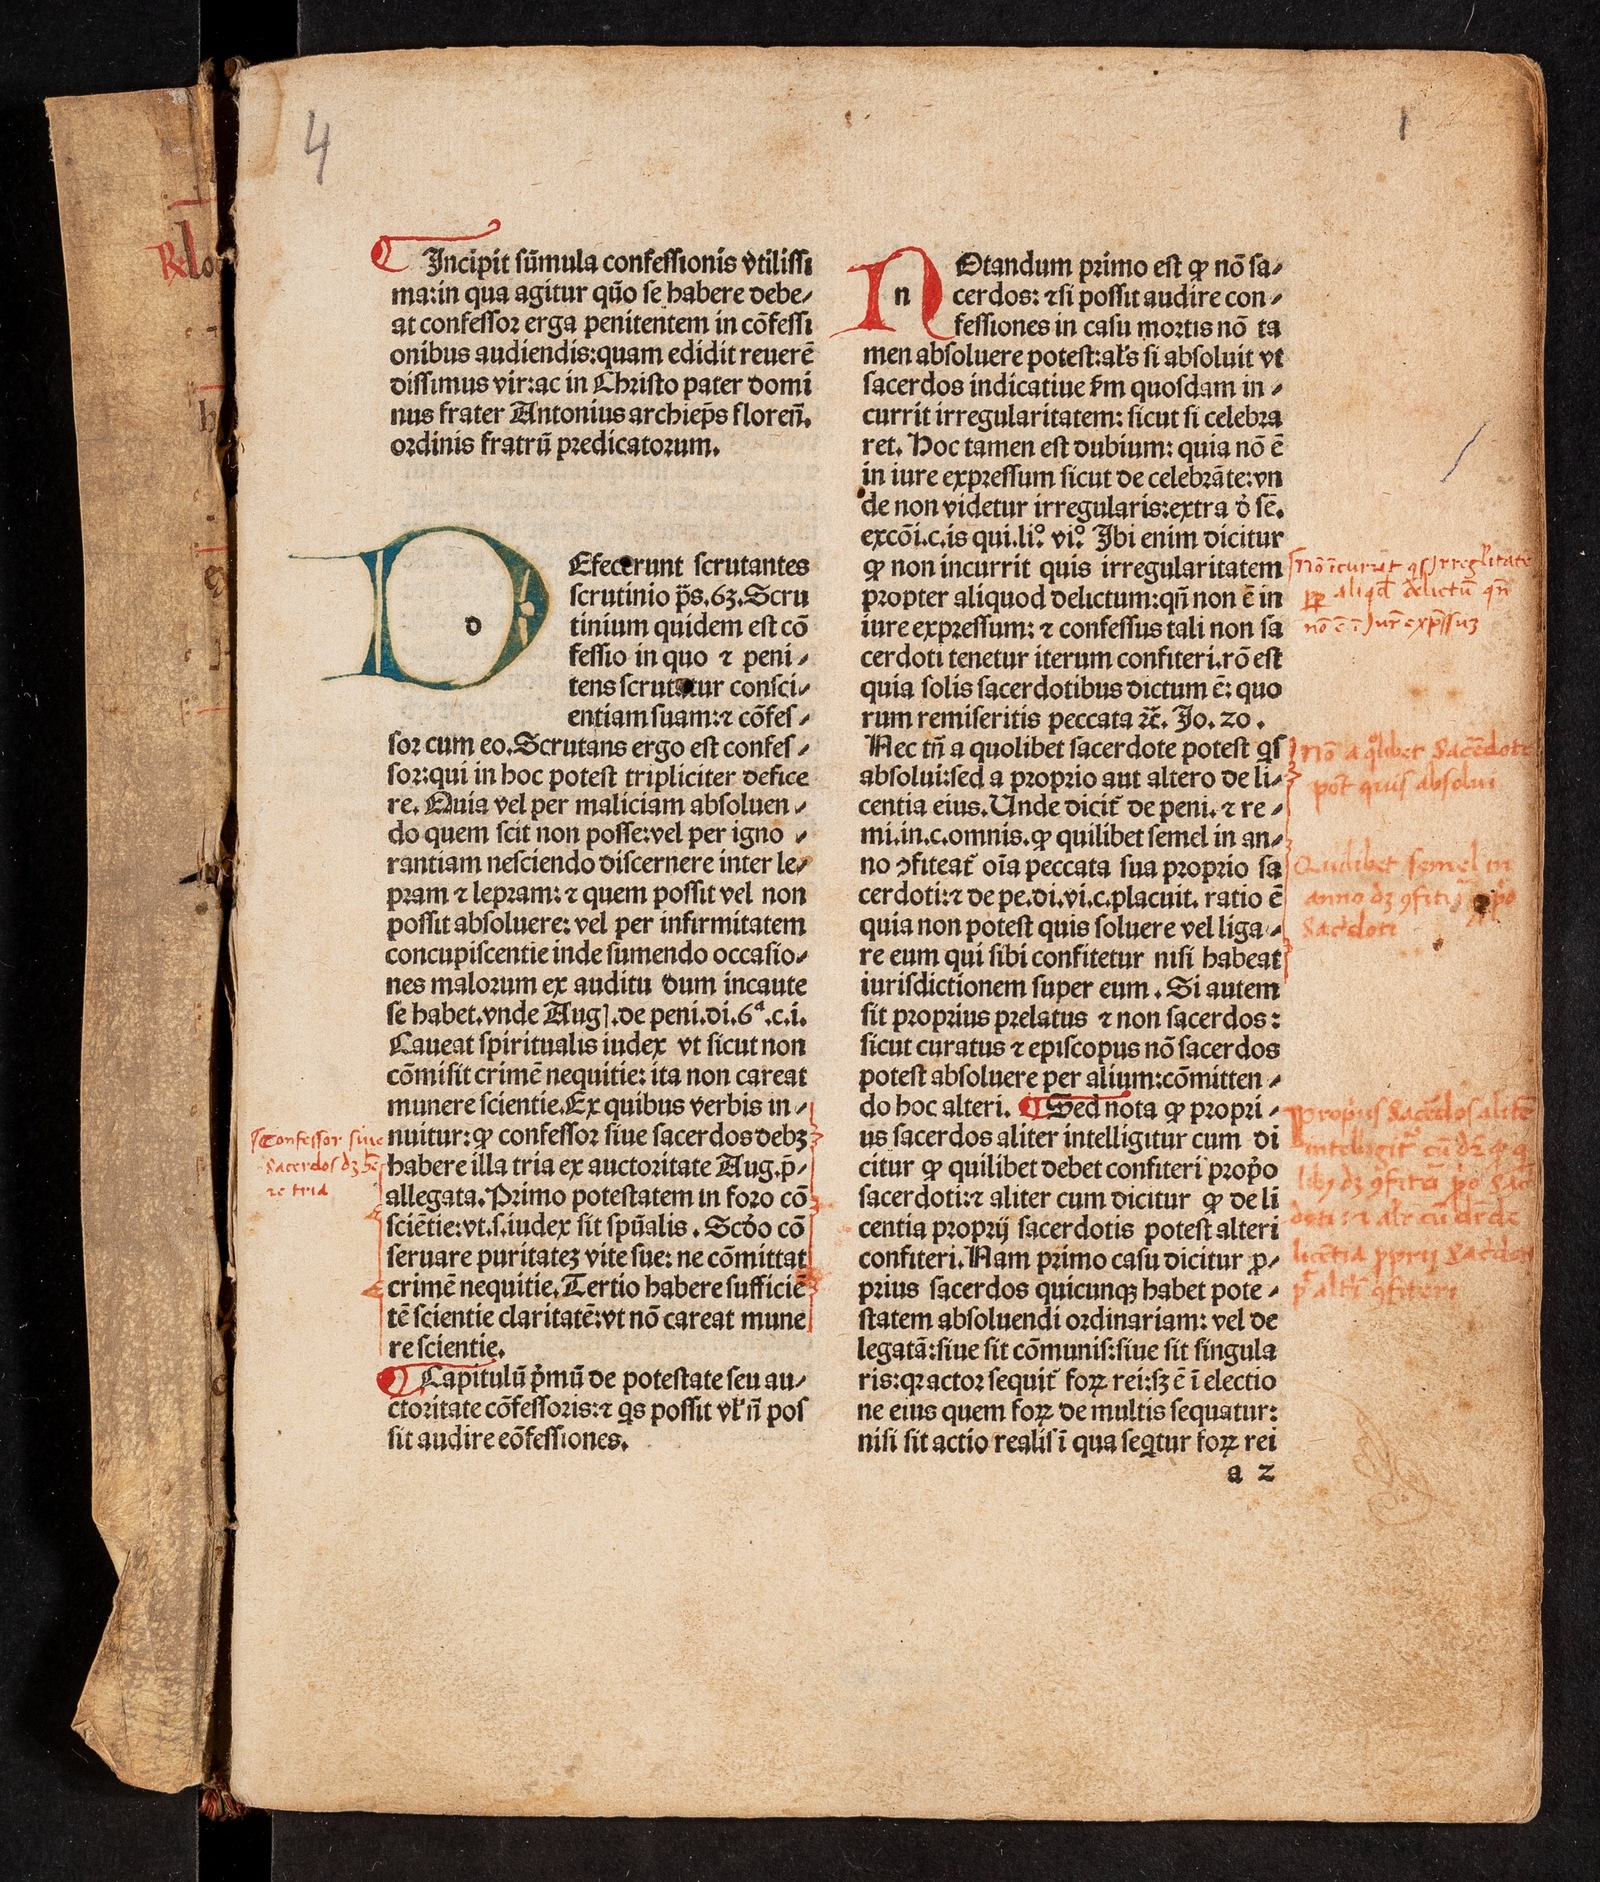 4
1
Incipit sūmula confessionis vtilissi
ma:in qua agitur qūo se habere debe⸗
at confessor erga penitentem in cōfessi
onibus audiendis:quam edidit reuerē
dissimus vir:ac in Christo pater domi
nus frater Antonius archiep̄s floren̄.
ordinis fratrū predicatorum.
D
d
Efecerunt scrutantes
scrutinio p̄s.63.Scru
tinium quidem est cō
fessio in quo ⁊ peni⸗
tens scrutatur consci⸗
entiam suam:⁊ cōfes⸗
sor cum eo.Scrutans ergo est confes⸗
sor:qui in hoc potest tripliciter defice
re. Quia vel per maliciam absoluen⸗
do quem scit non posse:vel per igno⸗
rantiam nesciendo discernere inter le⸗
pram ⁊ lepram:⁊ quem possit vel non
possit absoluere: vel per infirmitatem
concupiscentie inde sumendo occasio⸗
nes malorum ex auditu dum incaute
se habet.vnde Auḡ.de peni.di.6ª.c.i.
Caueat spiritualis iudex vt sicut non
cōmisit crimē nequitie: ita non careat
munere scientie.Ex quibus verbis in⸗
nuitur:ꝙ confessor siue sacerdos debꝫ
habere illa tria ex auctoritate Aug.p̄⸗
allegata.Primo potestatem in foro cō
sciētie:vt.s.iudex sit spūalis. Scd̓o cō
seruare puritateꝫ vite sue: ne cōmittat
crimē nequitie.Tertio habere sufficiē
tē scientie claritatē:vt nō careat mune
re scientie.
Capitulū p̓mū de potestate seu au⸗
ctoritate cōfessoris:⁊ q̄s possit vl̓ n̄ pos
sit audire eōfessiones.
Confessor siue
sacerdos dꝫ hē
re tria
N
n
Otandum primo est ꝙ nō sa⸗
cerdos: ⁊si possit audire con⸗
fessiones in casu mortis nō ta
men absoluere potest:al̓s si absoluit vt
sacerdos indicatiue s̓m quosdam in⸗
currit irregularitatem: sicut si celebra
ret. Hoc tamen est dubium: quia nō ē
in iure expressum sicut de celebrāte:vn
de non videtur irregularis:extra d̓ sē.
excōi.c.is qui.li°. vi°. Ibi enim dicitur
ꝙ non incurrit quis irregularitatem
propter aliquod delictum:qn̄ non ē in
iure expressum: ⁊ confessus tali non sa
cerdoti tenetur iterum confiteri.rō est
quia solis sacerdotibus dictum ē: quo
rum remiseritis peccata ⁊c̄. Jo. 20.
Nec tn̄ a quolibet sacerdote potest q̄s
absolui:sed a proprio aut altero de li⸗
centia eius.Unde dicit̄ de peni. ⁊ re⸗
mi.in.c.omnis.ꝙ quilibet semel in an⸗
no ꝯfiteat̄ oīa peccata sua proprio sa
cerdoti:⁊ de pe.di.vi.c.placuit. ratio ē
quia non potest quis soluere vel liga⸗
re eum qui sibi confitetur nisi habeat
iurisdictionem super eum. Si autem
sit proprius prelatus ⁊ non sacerdos:
sicut curatus ⁊ episcopus nō sacerdos
potest absoluere per alium:cōmitten⸗
do hoc alteri. Sed nota ꝙ propri⸗
us sacerdos aliter intelligitur cum di
citur ꝙ quilibet debet confiteri prop̓o
sacerdoti:⁊ aliter cum dicitur ꝙ de li
centia proprij sacerdotis potest alteri
confiteri. Nam primo casu dicitur ꝓ⸗
prius sacerdos quicunqꝫ habet pote⸗
statem absoluendi ordinariam: vel de
legatā:siue sit cōmunis:siue sit singula
ris:qꝛ actor sequit̄ foꝝ rei:sꝫ ē ī electio
ne eius quem foꝝ de multis sequatur:
nisi sit actio realis ī qua seq̄tur foꝝ rei
a 2
Nō īcurrit q̄s Irreglītatē
ꝓp̄ aliqd̓ delictū qn̄
nō ē ī Jure exp̄ssuꝫ
Nō a q̊libet Sacēdote
pōt quis absolui
Quilibet semel in
anno dꝫ ꝯfit̄i
Sacēdoti
Prop̓us Sacēdos alitē
intelligit̄ cū dr̄ ꝙ q
libꝫ dꝫ ꝯfitēi p̓o Sacē
doti: ⁊ al̓r cū dr̄ de
licētia ꝓprij Sacēdot
pt̄ altī ꝯfiteri